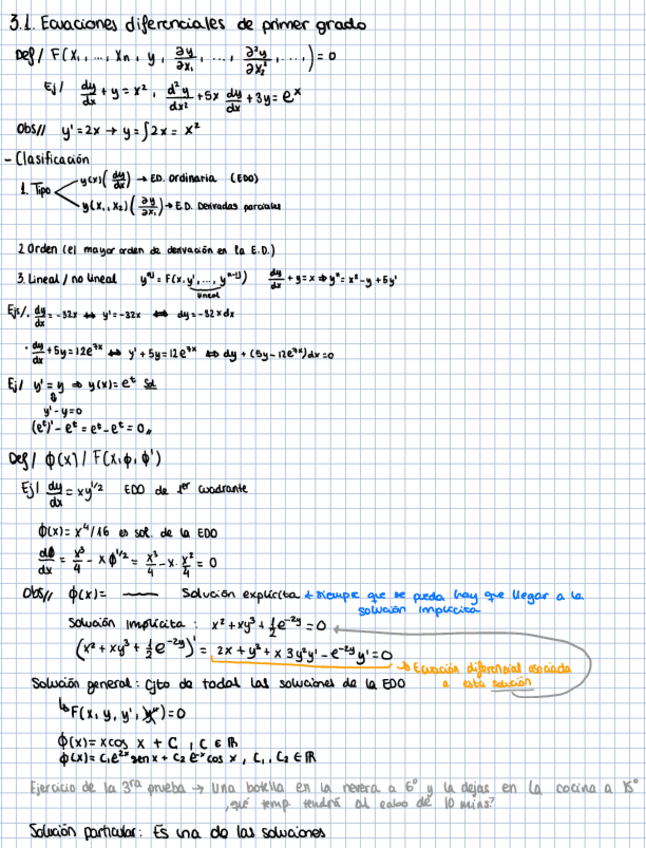 3.1. Ecuaciones diferenciales de primer grado
Def/ F(x₁, ..., xn, y, ∂y/∂x₁, ..., ∂²y/∂x₂², ...) = 0
Ej/ dy/dx + y = x², d²y/dx² + 5x dy/dx + 3y = eˣ
Obs// y' = 2x → y = ∫2x = x²
- Clasificación
1. Tipo
y(x) (dy/dx) → E.D. Ordinaria (EDO)
y(x₁, x₂) (∂y/∂x₁) → E.D. Derivadas parciales
2. Orden (el mayor orden de derivación en la E.D.)
3. Lineal / no lineal yⁿ⁾ = F(x, y', ..., yⁿ⁻¹⁾) dy/dx + y = x ⇒ y'' = x² - y + 5y'
lineal
Ejs/. dy/dx = -32x ↔ y' = -32x ⇔ dy = -32xdx
· dy/dx + 5y = 12e⁷ˣ ↔ y' + 5y = 12e⁷ˣ ⇔ dy + (5y - 12e⁷ˣ)dx = 0
Ej/ y' = y ⇒ y(x) = eᵗ Sol
⇕
y' - y = 0
(eᵗ)' - eᵗ = eᵗ - eᵗ = 0,,
Def/ ϕ(x) / F(x, ϕ, ϕ')
Ej/ dy/dx = xy^1/2 EDO de 1er cuadrante
ϕ(x) = x⁴/16 es sol. de la EDO
dϕ/dx = x³/4 - xϕ^1/2 = x³/4 - x · x²/4 = 0
Obs// ϕ(x) = —— Solución explícita + siempre que se pueda hay que llegar a la
solución implícita
Solución implícita : x² + xy³ + ½e⁻²ʸ = 0
(x² + xy³ + ½e⁻²ʸ)' = 2x + y³ + x 3y²y' - e⁻²ʸ y' = 0
↳ Ecuación diferencial asociada
a esta solución
Solución general : Cjto de todas las soluciones de la EDO
↳ F(x, y, y', y'') = 0
ϕ(x) = xcos x + C, C ∈ ℝ
ϕ(x) = C₁e²ˣ sen x + C₂ eˣ cos x, C₁, C₂ ∈ ℝ
Ejercicio de la 3ra prueba → Una botella en la nevera a 6° y la dejas en la cocina a 15°
¿qué temp tendrá al cabo de 10 mins?
Solución particular: Es una de las soluciones